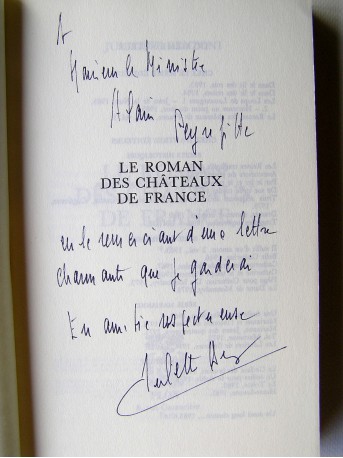 A
Monsieur le Ministre
Alain
Peyrefitte
LE ROMAN
DES CHÂTEAUX
DE FRANCE
en le remerciant d'une lettre
charmante que je garderai
En amitié respectueuse
Juliette